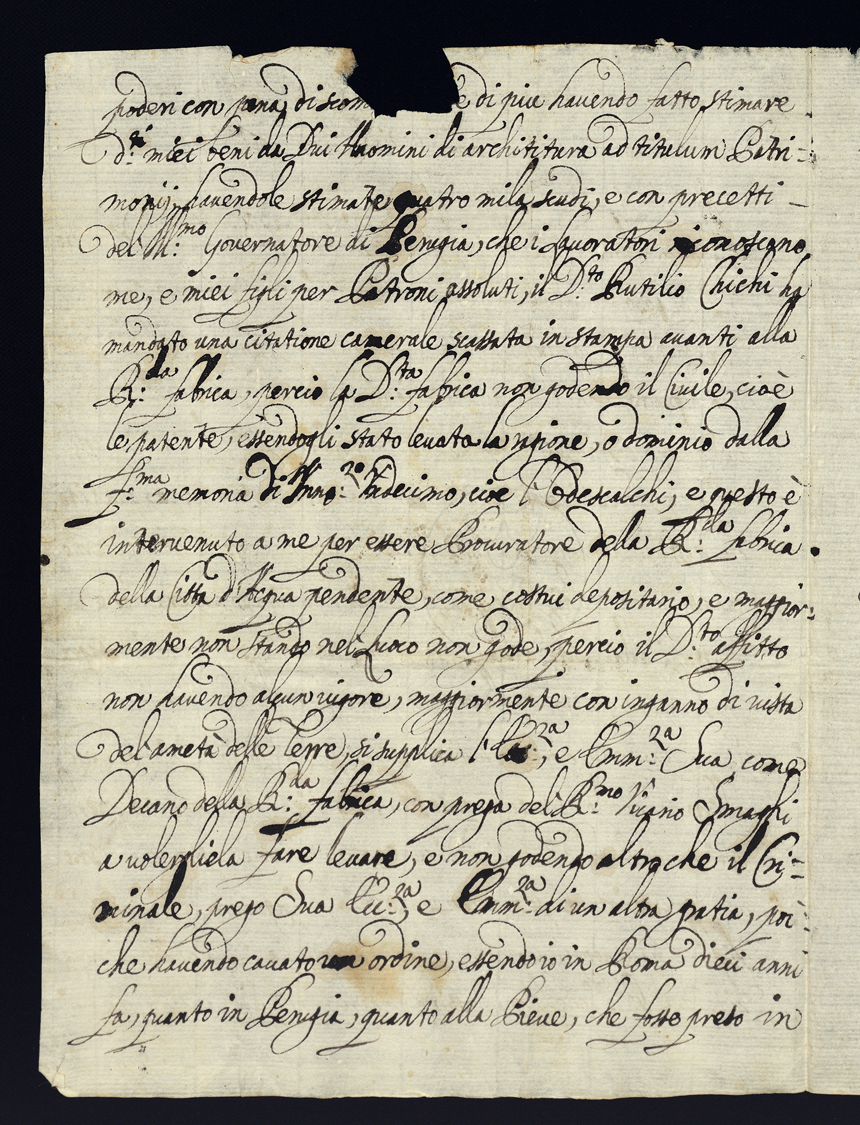 poderi con pena, di scom e di piu havendo fatto stimare
d:ti miei beni da Dui Huomini di archititura ad titulum Patri-
monij, havendole stimate quatro mila scudi, e con precetti
del Ill:mo Governatore di Perugia, che i lavoratori riconoscano
me, e miei figli per Patroni assoluti, il D:to Rutilio Chichi ha
mandato una citatione camerale scassata in stampa avanti alla
R:da fabica, percio la D:ta fabrica non godendo il Civile, cioè
le patente, essendogli stato levata la ragione, o dominio dalla
f:ma memoria di Inno:zo Undecimo, cioe l'Odescalchi, e questo è
intervenuto a me per essere Procuratore della R:da fabrica
della Città d'Acqua pendente, come costui depositario, e maggior-
mente non stando nel Luoco non gode, percio il D:to affitto
non havendo alcun vigore, maggiormente con inganno di vista
del ametà delle Terre, si supplica l'Ecc:za, e Emm:za Sua come
Decano della R:da fabrica, con prega del R:mo Vicario
a volergliela fare levare, e non godendo altro che il Cri-
minale, prego Sua Ecc:za, e Emm:za di un altra gratia, poi-
che havendo cavato un ordine, essendo io in Roma dieci anni
fa, quanto in Perugia, quanto alla Pieve, che fosse preso in